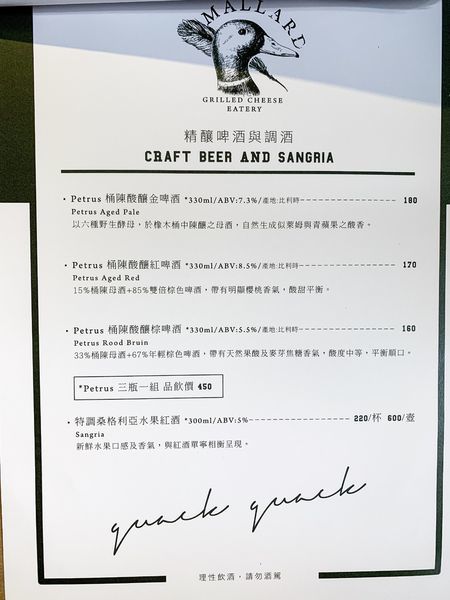 MALLARD
GRILLED CHEESE
EATERY
精釀啤酒與調酒
CRAFT BEER AND SANGRIA
• Petrus 桶陳酸釀金啤酒 *330ml/ABV:7.3%/產地:比利時 180
Petrus Aged Pale
以六種野生酵母，於橡木桶中陳釀之母酒，自然生成似萊姆與青蘋果之酸香。
• Petrus 桶陳酸釀紅啤酒 *330ml/ABV:8.5%/產地:比利時 170
Petrus Aged Red
15%桶陳母酒+85%雙倍棕色啤酒，帶有明顯櫻桃香氣，酸甜平衡。
• Petrus 桶陳酸釀棕啤酒 *330ml/ABV:5.5%/產地:比利時 160
Petrus Rood Bruin
33%桶陳母酒+67%年輕棕色啤酒，帶有天然果酸及麥芽焦糖香氣，酸度中等，平衡順口。
*Petrus 三瓶一組 品飲價 450
• 特調桑格利亞水果紅酒 *300ml/ABV:5% 220/杯 600/壺
Sangria
新鮮水果口感及香氣，與紅酒單寧相衡呈現。
quack quack
理性飲酒，請勿酒駕